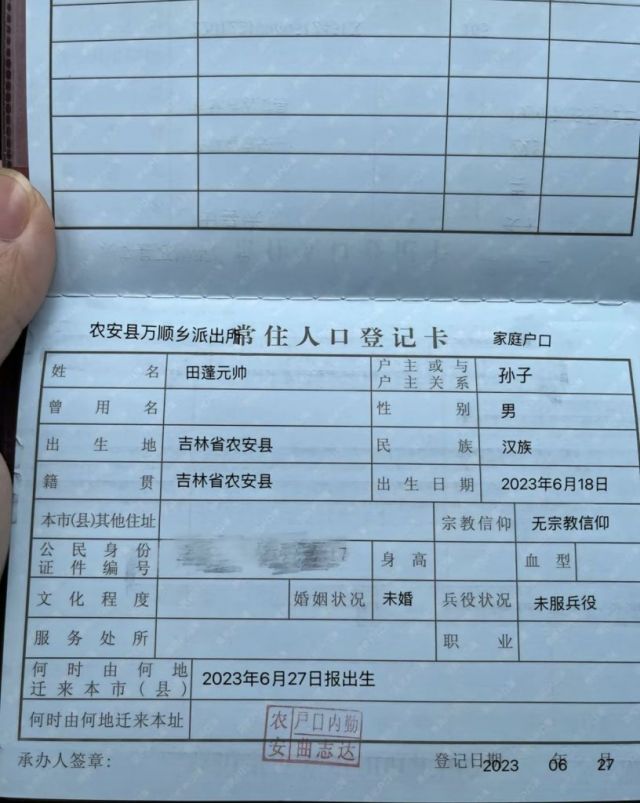 农安县万顺乡派出所 常住人口登记卡 家庭户口
姓名 田蓬元帅 户主或与户主关系 孙子
曾用名 性别 男
出生地 吉林省农安县 民族 汉族
籍贯 吉林省农安县 出生日期 2023年6月18日
本市(县)其他住址 宗教信仰 无宗教信仰
公民身份证件编号 身高 血型
文化程度 婚姻状况 未婚 兵役状况 未服兵役
服务处所 职业
何时由何地迁来本市(县) 2023年6月27日报出生
何时由何地迁来本址
农安 户口内勤 曲志达
承办人签章: 登记日期 2023 年 06 月 27